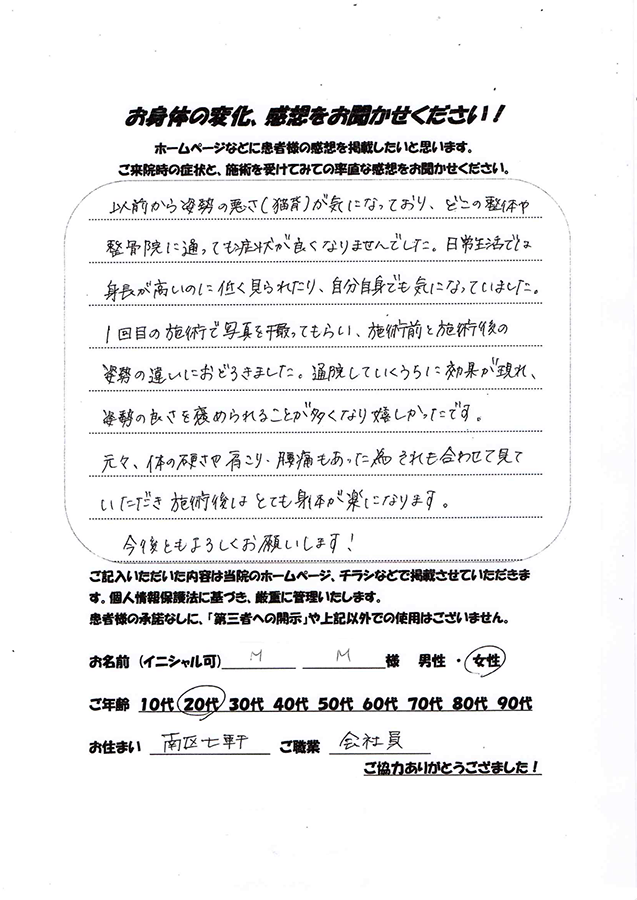 お身体の変化、感想をお聞かせください！
ホームページなどに患者様の感想を掲載したいと思います。
ご来院時の症状と、施術を受けてみての率直な感想をお聞かせください。
以前から姿勢の悪さ(猫背)が気になっており、どこの整体や
整骨院に通っても症状が良くなりませんでした。日常生活では
身長が高いのに低く見られたり、自分自身でも気になっていました。
1回目の施術で写真を撮ってもらい、施術前と施術後の
姿勢の違いにおどろきました。通院していくうちに効果が現れ、
姿勢の良さを褒められることが多くなり嬉しかったです。
元々、体の硬さや肩こり・腰痛もあった為それも合わせて見て
いただき施術後はとても身体が楽になります。
今後ともよろしくお願いします！
ご記入いただいた内容は当院のホームページ、チラシなどで掲載させていただきま
す。個人情報保護法に基づき、厳重に管理いたします。
患者様の承諾なしに、「第三者への開示」や上記以外での使用はございません。
お名前（イニシャル可） M M 様 男性 ・ 女性
ご年齢 10代 20代 30代 40代 50代 60代 70代 80代 90代
お住まい 南区七軒 ご職業 会社員
ご協力ありがとうござました！